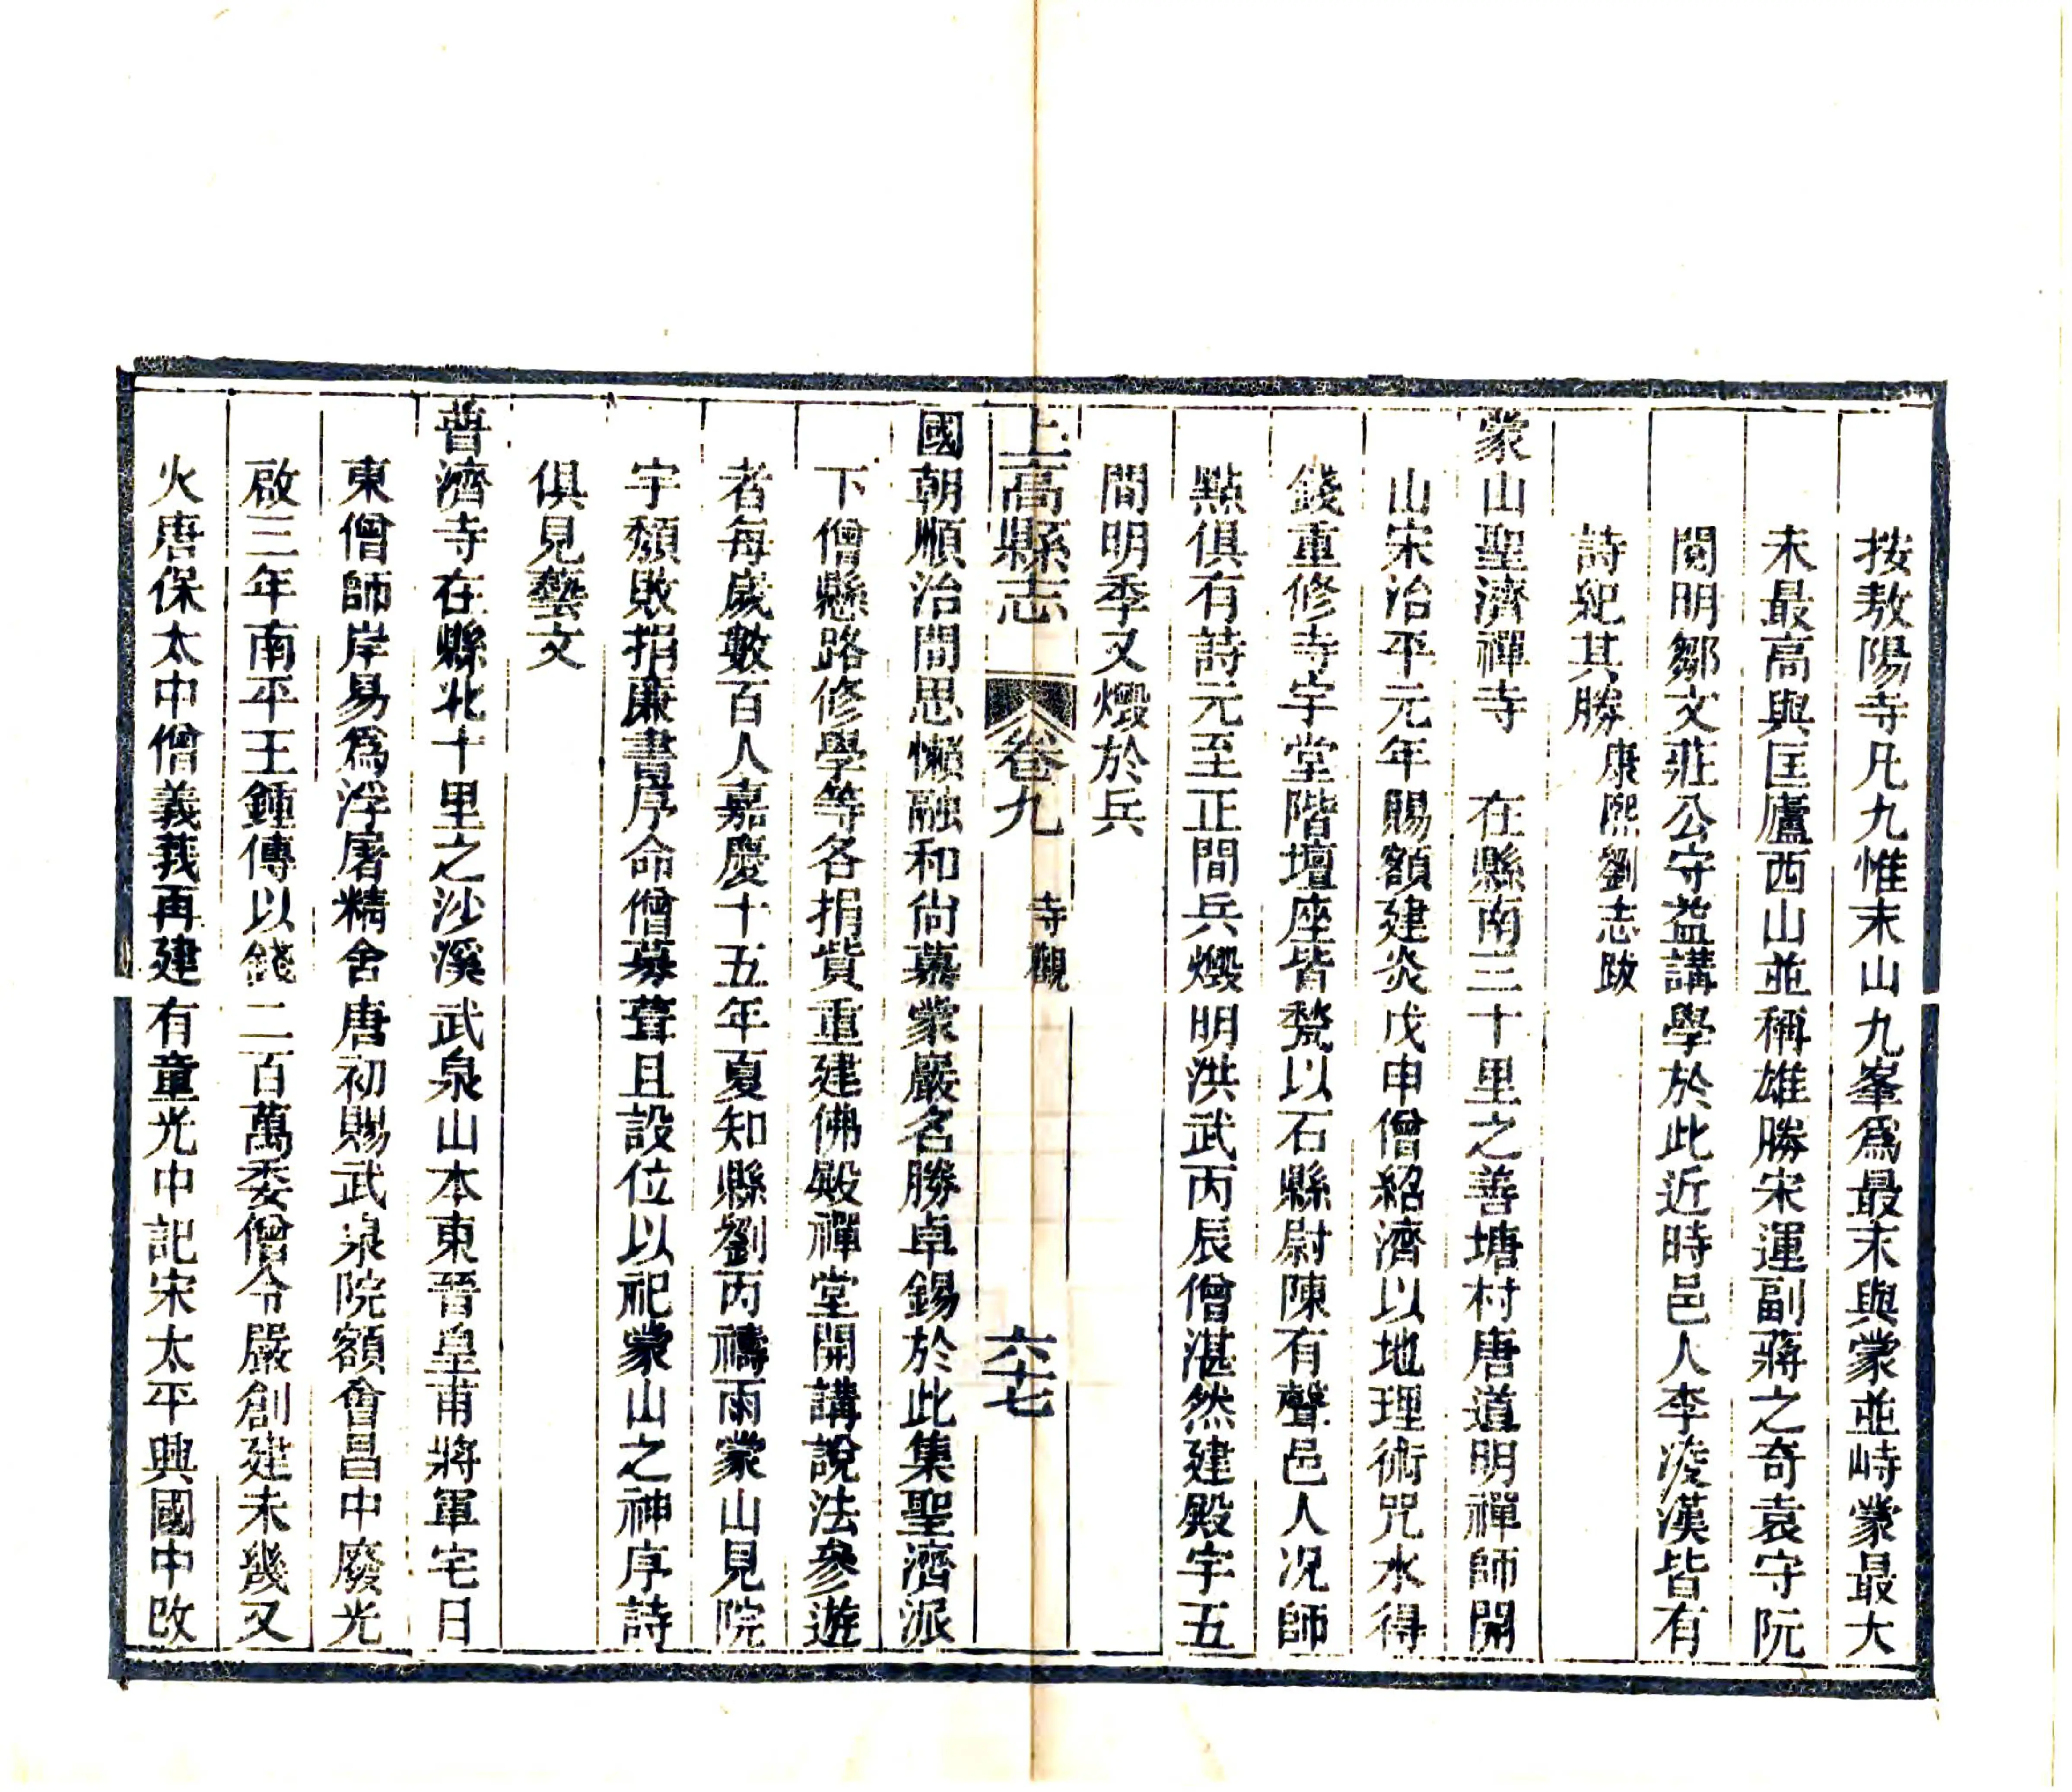 按敖陽寺凡九惟末山九峯爲最末與蒙並峙蒙最大
末最高與匡廬西山並稱雄勝宋運副蔣之奇袁守阮
閱明鄒文莊公守益講學於此近時邑人李凌漢皆有
詩紀其勝康熙劉志跋
蒙山聖濟禪寺　在縣南三十里之善塘村唐道明禪師開
山宋治平元年賜額建炎戊申僧紹濟以地理術咒水得
錢重修寺宇堂階壇座皆甃以石縣尉陳有聲邑人况師
點俱有詩元至正間兵燬明洪武丙辰僧湛然建殿宇五
間明季又燬於兵
上高縣志　卷九　寺觀　六十七
國朝順治間思懶融和尚慕蒙巖名勝卓錫於此集聖濟派
下僧懸路修學等各捐貲重建佛殿禪堂開講說法參遊
者每歲數百人嘉慶十五年夏知縣劉丙禱雨蒙山見院
宇頹敗捐廉書序命僧募葺且設位以祀蒙山之神序詩
俱見藝文
普濟寺在縣北十里之沙溪武泉山本東晉皇甫將軍宅日
東僧師岸易爲浮屠精舍唐初賜武泉院額會昌中廢光
啟三年南平王鍾傳以錢二百萬委僧令嚴創建未幾又
火唐保太中僧義莪再建有童光中記宋太平興國中改